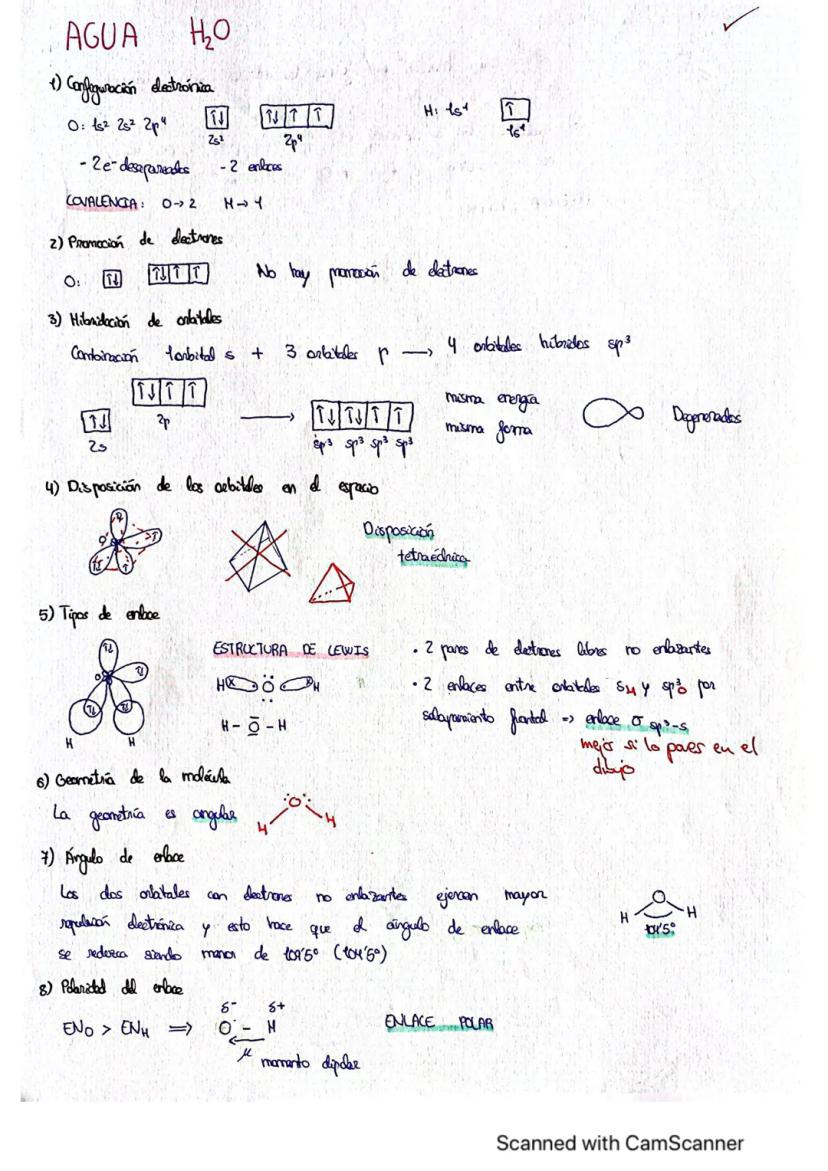 AGUA H₂O
1) Configuración electrónica
O: 1s² 2s² 2p⁴ ↑↓ ↑↓ ↑ ↑ H: 1s¹ ↑
2s² 2p⁴ 1s¹
- 2e⁻ desapareados - 2 enlaces
COVALENCIA: O→2 H→1
2) Promoción de electrones
O: ↑↓ ↑↓ ↑ ↑ No hay promoción de electrones
3) Hibridación de orbitales
Combinación 1 orbital s + 3 orbitales p → 4 orbitales híbridos sp³
↑↓ ↑ ↑ misma energía
↑↓ → ↑↓ ↑↓ ↑ ↑ misma forma Degenerados
2s 2p sp³ sp³ sp³ sp³
4) Disposición de los orbitales en el espacio
Disposición
tetraédrica
5) Tipos de enlace
ESTRUCTURA DE LEWIS · 2 pares de electrones libres no enlazantes
H O H · 2 enlaces entre orbitales s_H y sp³_O por
H - O - H solapamiento frontal => enlace σ sp³-s
H H mejor si lo pones en el
dibujo
6) Geometría de la molécula
La geometría es angular H O H
7) Ángulo de enlace
Los dos orbitales con electrones no enlazantes ejercen mayor
repulsión electrónica y esto hace que el ángulo de enlace H O H
se reduzca siendo menor de 109'5° (104'5°) 104'5°
8) Polaridad del enlace
δ⁻ δ+
EN_O > EN_H => O - H ENLACE POLAR
μ momento dipolar
Scanned with CamScanner